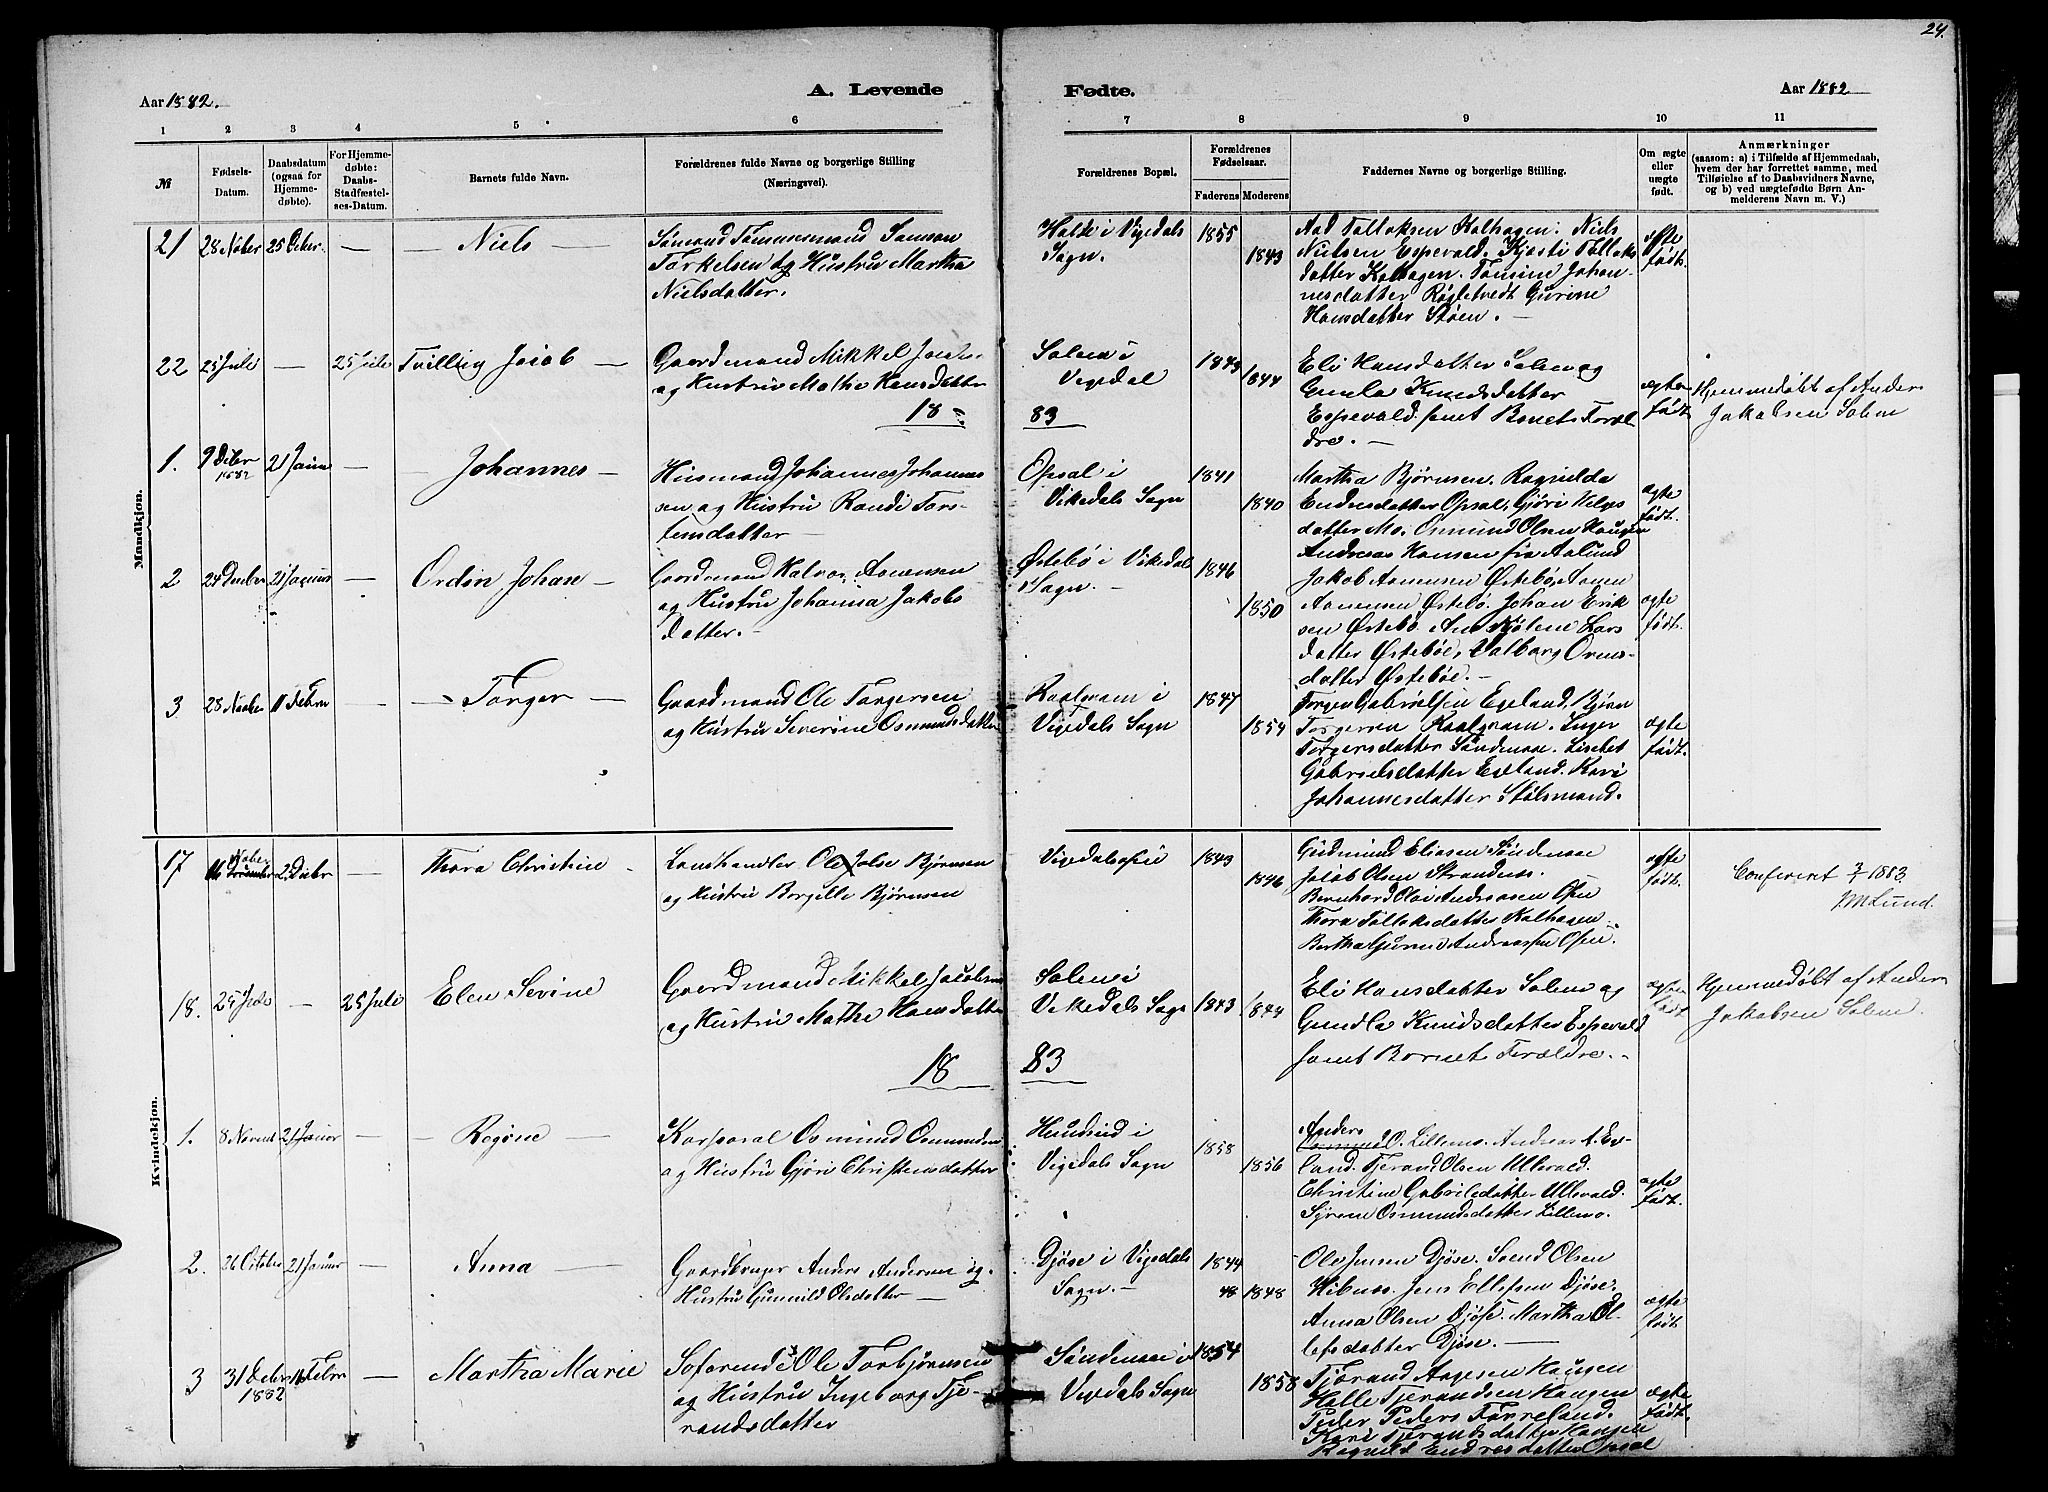 24.
Aar 1882.
A. Levende
Fødte.
Aar 1882
1 2 3 4 5 6 7 8 9 10 11
№
Fødsels-
Datum.
Daabsdatum
(ogsaa for
Hjemme-
døbte).
For Hjemme-
døbte:
Daabs-
Stadfæstel-
ses-Datum.
Barnets fulde Navn.
Forældrenes fulde Navne og borgerlige Stilling
(Næringsvei).
Forældrenes Bopæl.
Forældrenes
Fødselsaar.
Faderens Moderens
Faddernes Navne og borgerlige Stilling.
Om ægte
eller
uægte
født.
Anmærkninger
(saasom: a) i Tilfælde af Hjemmedaab,
hvem der har forrettet samme, med
Tilføielse af to Daabsvidners Navne,
og b) ved uægtefødte Børn An-
melderens Navn m. V.)
Mandkjøn.
21 28 Nober 25 Deber — — Niels —
Sømand Tømmesmand Samson
Torkelsen og Hustru Martha
Nielsdatter.
Hatle i Vigedals
Sogn.
1855
1843
Aad Tollaksen Kalhagen. Niels
Nielsen Espevold. Kjersti Tollaks
datter Kalhagen. Tomine Johan-
nesdatter Røgletvedt Gurine
Hansdatter Støen. —
egte
født.
22 25 Juli — 25 Juli Tvilling Jacob —
Gaardmand Mikkel Jacobs.
og Hustru Mathe Hansdatter
18 =
Solem i
Vigedal
83
1843
1844
Eli Hansdatter Solem og
Gunla Knudsdatter
Espevold samt Barnets Foræl
dre. —
ægte
født
Hjemmedøbt af Anders
Jakobsen Solem
1. 9 Deber
1882 21 Janu — — Johannes —
Husmand Johannes Johannes
sen og Hustru Rande Tors-
tensdatter —
Opsal i
Vikedals Sogn
1841
1840
Martha Bjørnsen. Ragnilda
Endresdatter Opsal, Gjøri Helges
datter Mo. Osmund Olsen Haugen
Andreas Hansen fra Aalund
ægte
født.
2 24 Dember 21 Januar — Ordin Johan —
Gaardmand Halvor Aanensen
og Hustru Johanna Jakobs
datter. —
Østebø i Vikedals
Sogn. —
1846
1850
Jakob Aanensen Østebø, Aanen
Aanensen Østebø. Johan Erik
sen Østebø. Ane Kjølene Lars
datter Østebøe, Valborg Orms-
datter Østebøe. —
ægte
født.
3 28 Nober 11 Febru — — Torger —
Gaardmand Ole Torgersen
og Hustru Severine Osmundsdatter
Raalgvam i
Vigedals Sogn
1847
1854
Torger Gabrielsen Egeland, Bjørn
Torgersen Raalgvam. Inger
Torgersdatter Søndenaae. Lisebet
Gabrielsdatter Egeland. Kari
Johannesdatter Stølsmand.
ægte
født.
Kvindekjøn.
17 16 Nober 2 Debr — Thora Christine —
Landhandler Ole Jolse Bjørnsen
og Hustru Borgille Bjørnsen
Vigedalsøfrie
1843
1846
Gudmund Eliasen Søndenaae
Jacob Olsen Strandnes.
Bernhard Olai Andreasen Øfrie
Thora Tollaksdatter Kalhagen.
Bertha Gurine Andreassen Øfrie.
ægte
født.
Confereret 3/1 1883
J.M Lund.
18. 25 Juli — 25 Juli Elen Sevine
Gaardmand Mikkel Jacobsen
og Hustru Mathe Hansdatter
18
Solem i
Vikedals Sogn
83
1843
1844
Eli Hansdatter Solem og
Gundla Knudsdatter Espevold
samt Barnets Forældre. —
ægte
født
Hjemmedøbt af Anders
Jakobsen Solem.
1. 8 Novemb 21 Januar — — Regine —
Korporal Osmund Osmundsen
og Hustru Gjøri Christensdatter
Hundseid i
Vigedals Sogn
1858
1856
Anders
Osmund O. Lillemo. Andreas A. Eg-
land. Tjerand Olsen Ullevold.
Christine Gabrielsdatter Ullevold.
Syrene Osmundsdatter Lillemo.
ægte
født.
2. 26 October 21 Januar — Anna —
Gaardbruger Anders Andersen og
Hustru Gunnild Olsdatter —
Djøse i Vigedals
Sogn. —
1844
48 1848
Ole Jensen Djøse. Svend Olsen
Hibnes. Jens Ellefsen Djøse.
Anna Olsen Djøse. Martha Ol-
lefsdatter Djøse. —
ægte
født
3 31 Deber
1882 11 Febru — Martha Marie
Sofarende Ole Torbjørnsen
og Hustru Ingeborg Tje-
randsdatter
Søndenaae i
Vigedals Sogn
1854
1858
Tjerand Aagesen Haugen
Halle Tjerandsen Haugen
Peder Peders Førreland.
Kari Tjerandsdatter Haugen
Ragnild Endresdatter Opsal
ægte
født.